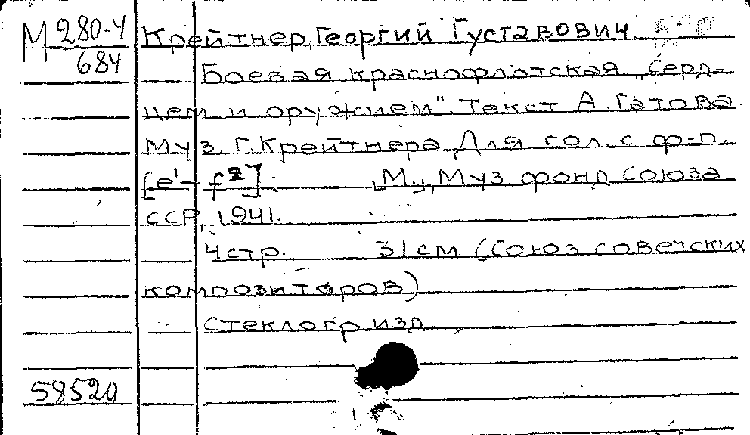 М 280-4
684
Крейтнер, Георгий Густавович
Боевая краснофлотская „Серд-
цем и оружием". Текст А. Гатова
Муз. Г. Крейтнера. Для гол. с ф-п.
[e¹- f²] [М.], Муз фонд Союза
ССР, 1941.
4 стр. 31 см (Союз советских
композиторов)
Стеклогр. изд.
58520